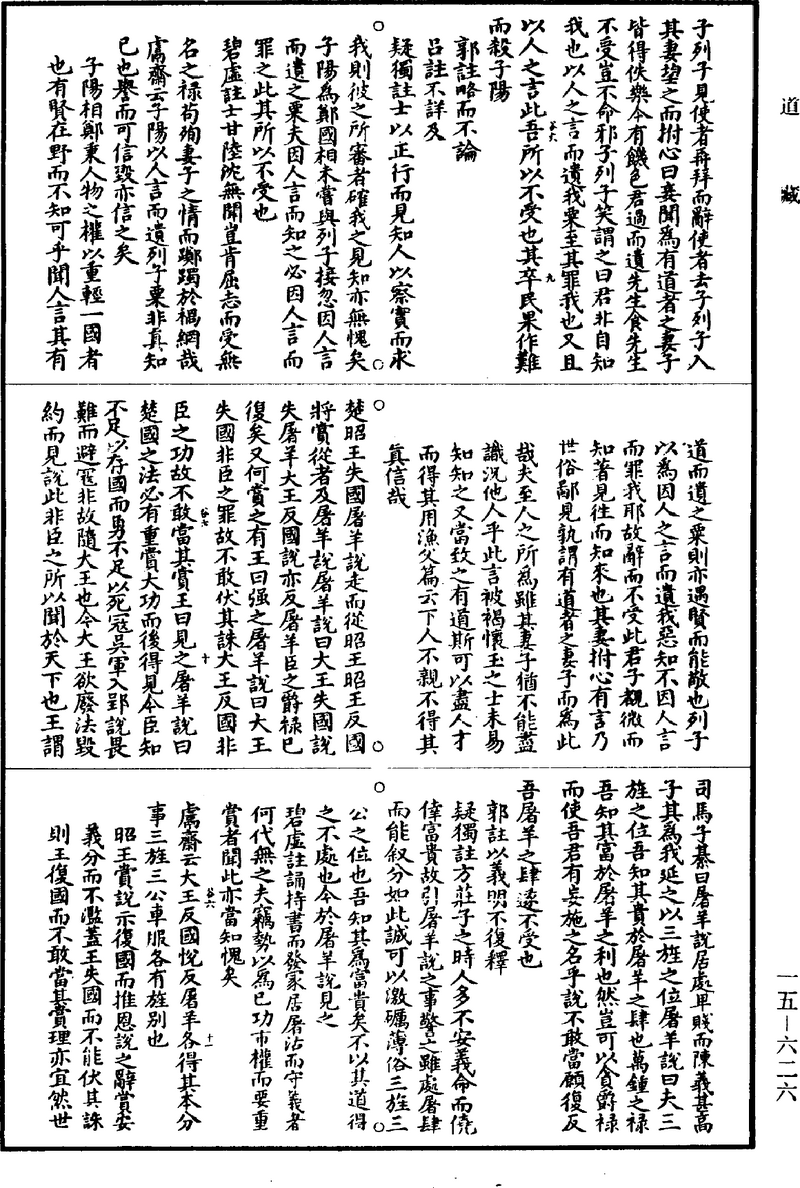 道藏
子列子見使者再拜而辭使者去子列子入
其妻望之而拊心曰妾聞為有道者之妻子
皆得佚樂今有饑色君過而遺先生食先生
不受豈不命邪子列子笑謂之曰君非自知
我也以人之言而遺我粟至其罪我也又且
以人之言此吾所以不受也其卒民果作難
而殺子陽
郭註略而不論
呂註不詳及
疑獨註士以正行而見知人以察實而求
我則彼之所審者確我之見知亦無愧矣
子陽為鄭國相未嘗與列子接忽因人言
而遺之粟夫因人言而知之必因人言而
罪之此其所以不受也
碧虛註士甘陸沈無聞豈肯屈志而受無
名之祿苟殉妻子之情而躑躅於禍網哉
鬳齋云子陽以人言而遺列子粟非真知
已也譽而可信毀亦信之矣
子陽相鄭秉人物之權以重輕一國者
也有賢在野而不知可乎聞人言其有
道而遺之粟則亦遇賢而能敬也列子
以為因人之言而遺我惡知不因人言
而罪我耶故辭而不受此君子覩微而
知著見往而知來也其妻拊心有言乃
世俗鄙見孰謂有道者之妻子而為此
哉夫至人之所為雖其妻子猶不能盡
識況他人乎此言被褐懷玉之士未易
知知之又當致之有道斯可以盡人才
而得其用漁父篇云下人不親不得其
真信哉
楚昭王失國屠羊說走而從昭王昭王反國
將賞從者及屠羊說屠羊說曰大王失國說
失屠羊大王反國說亦反屠羊臣之爵祿已
復矣又何賞之有王曰强之屠羊說曰大王
失國非臣之罪故不敢伏其誅大王反國非
臣之功故不敢當其賞王曰見之屠羊說曰
楚國之法必有重賞大功而後得見今臣知
不足以存國而勇不足以死寇吳軍入郢說畏
難而避寇非故隨大王也今大王欲廢法毀
約而見說此非臣之所以聞於天下也王謂
司馬子綦曰屠羊說居處卑賤而陳義甚高
子其為我延之以三旌之位屠羊說曰夫三
旌之位吾知其貴於屠羊之肆也萬鍾之祿
吾知其富於屠羊之利也然豈可以貪爵祿
而使吾君有妄施之名乎說不敢當願復反
吾屠羊之肆遂不受也
郭註以義明不復釋
疑獨註方莊子之時人多不安義命而僥
倖富貴故引屠羊說之事警之雖處屠肆
而能叙分如此誠可以激礪薄俗三旌三
公之位也吾知其為富貴矣不以其道得
之不處也今於屠羊說見之
碧虛註誦持書而發冢居屠沽而守義者
何代無之夫竊勢以為已功市權而要重
賞者聞此亦當知愧矣
鬳齋云大王反國悅反屠羊各得其本分
事三旌三公車服各有旌別也
昭王賞說示復國而推恩說之辭賞安
義分而不濫蓋王失國而不能伏其誅
則王復國而不敢當其賞理亦宜然世
一五－六二六